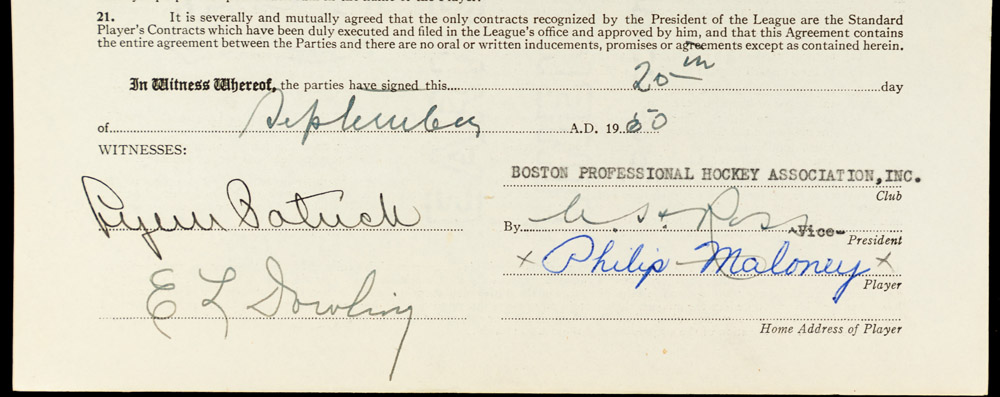 21. It is severally and mutually agreed that the only contracts recognized by the President of the League are the Standard
Player's Contracts which have been duly executed and filed in the League's office and approved by him, and that this Agreement contains
the entire agreement between the Parties and there are no oral or written inducements, promises or agreements except as contained herein.
In Witness Whereof, the parties have signed this 20th day
of September A.D. 1950
WITNESSES:
BOSTON PROFESSIONAL HOCKEY ASSOCIATION, INC.
Club
Lynn Patrick
By Ross Vice-President
Philip Maloney
Player
E L Dowling
Home Address of Player